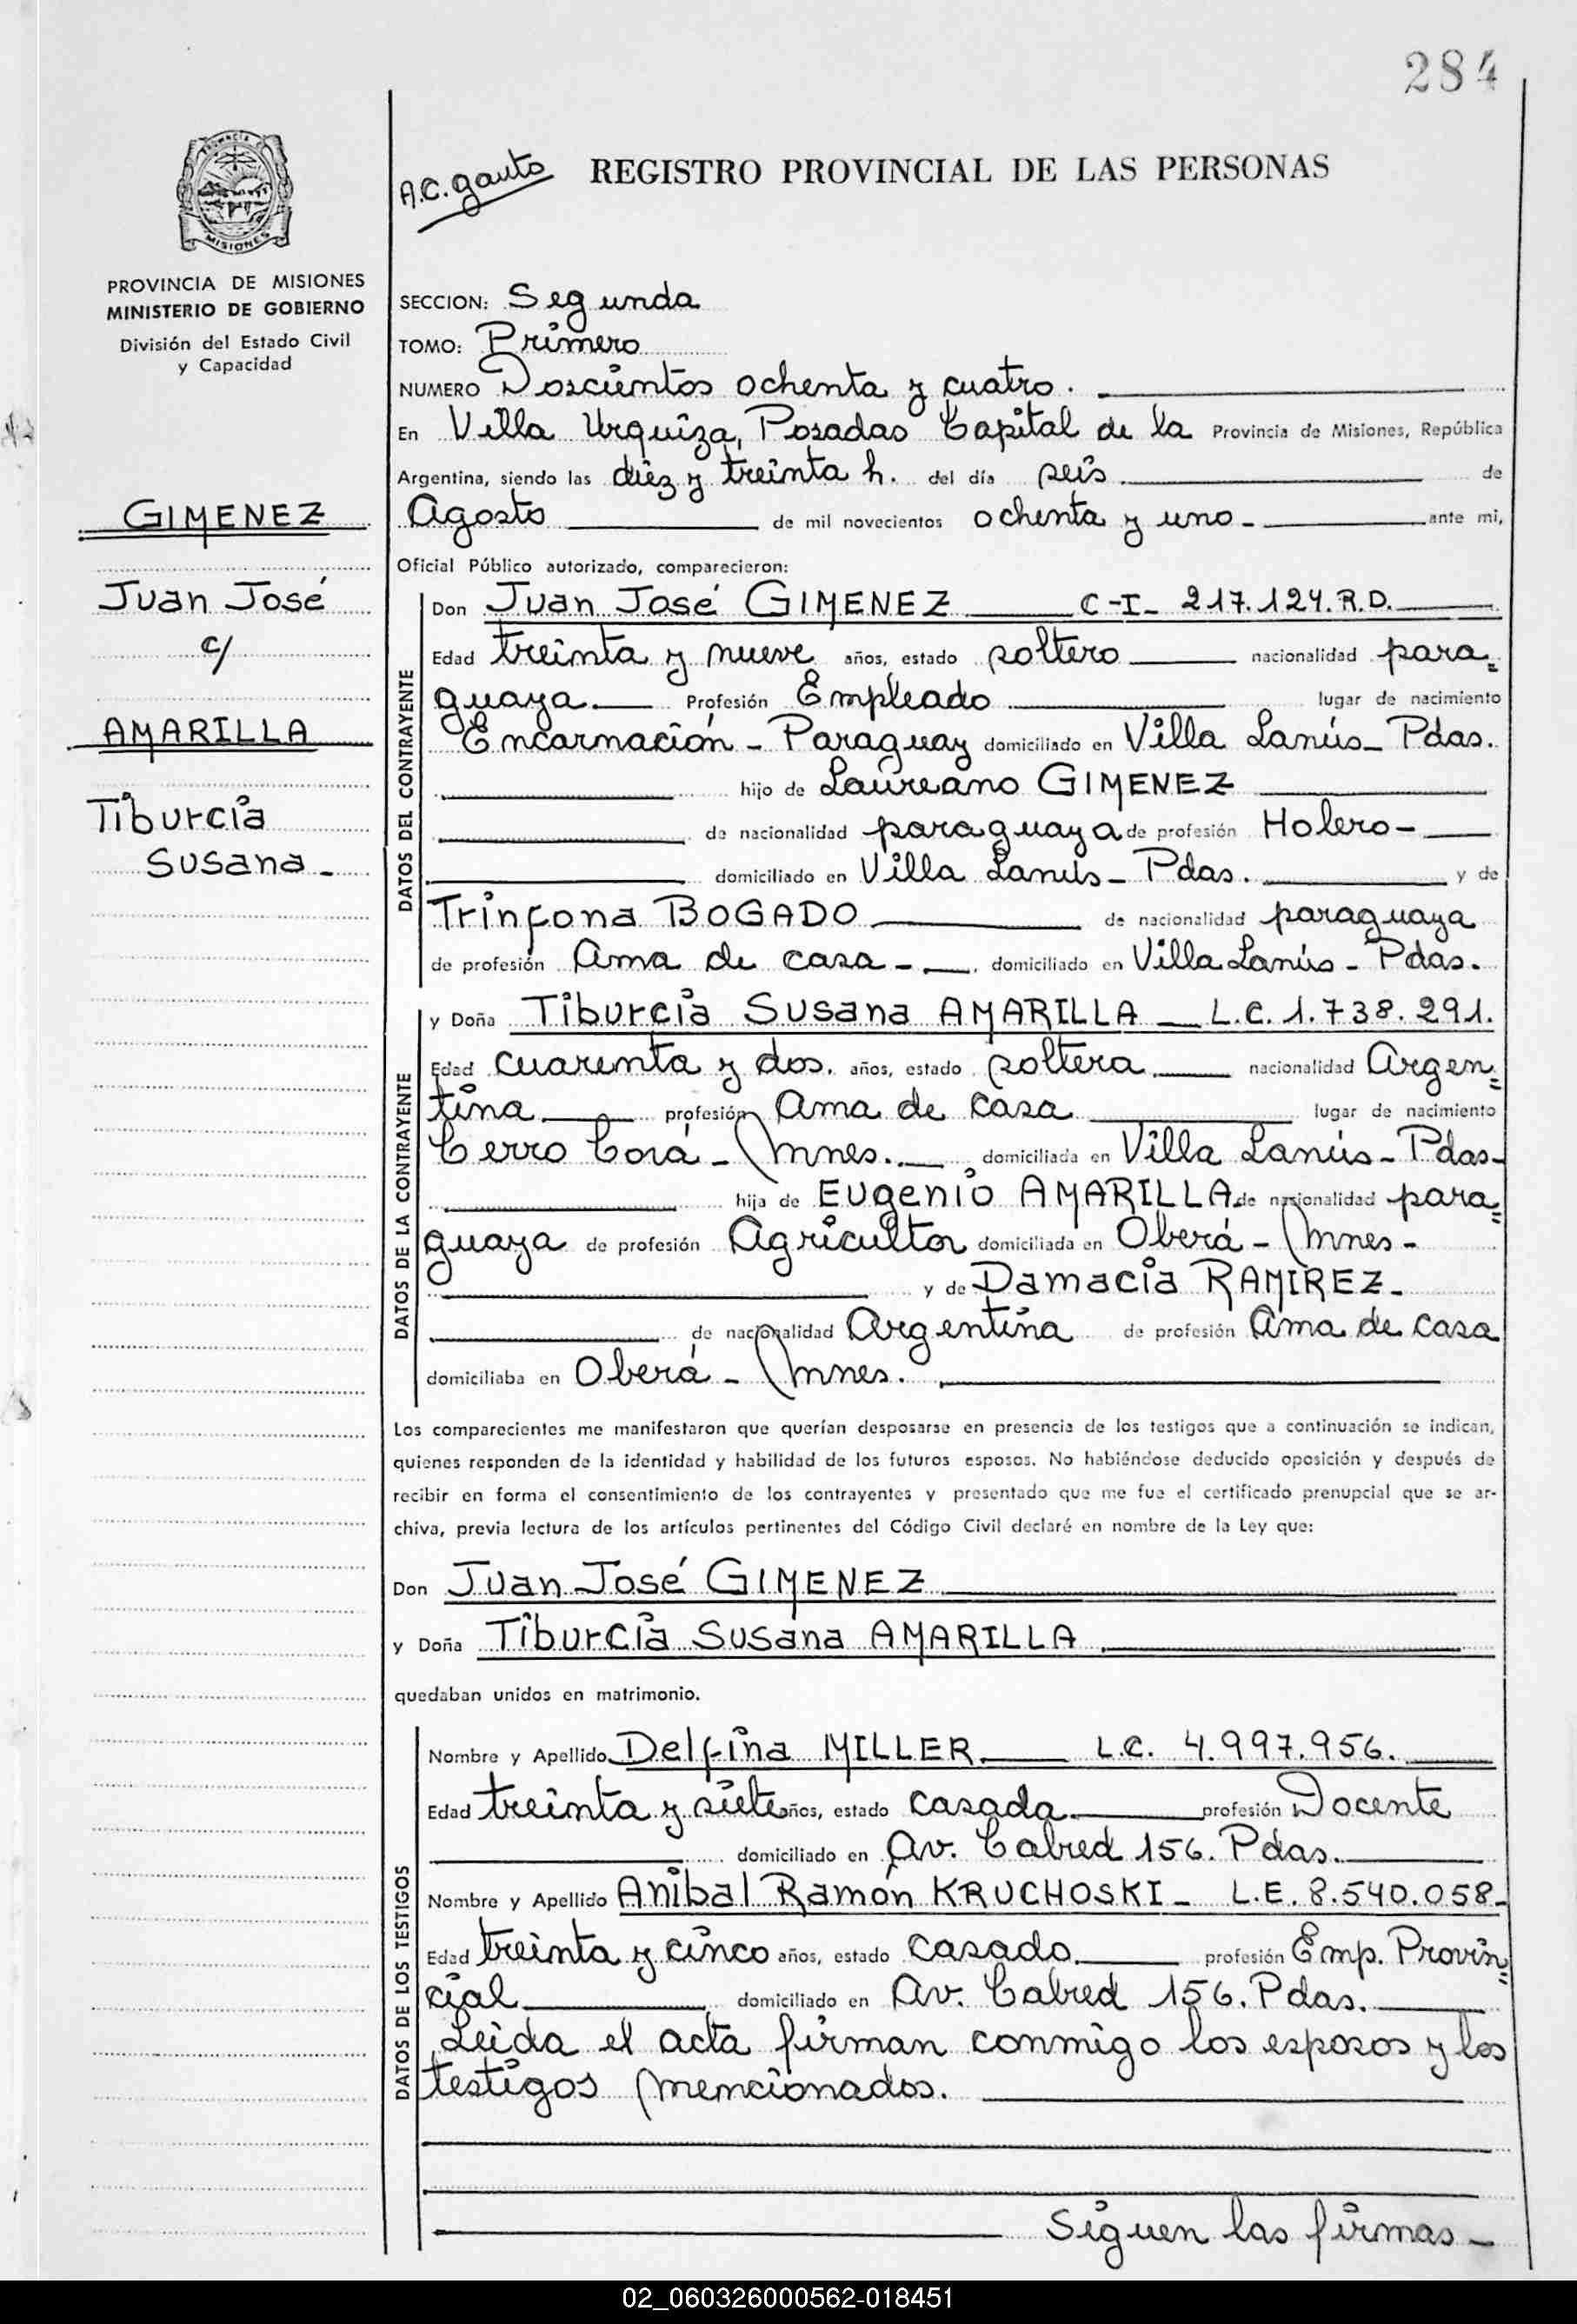 284
A.C. gauto
REGISTRO PROVINCIAL DE LAS PERSONAS
PROVINCIA DE MISIONES
MINISTERIO DE GOBIERNO
División del Estado Civil
y Capacidad
GIMENEZ
Juan José
c/
AMARILLA
Tiburcia
Susana -
SECCION: Segunda
TOMO: Primero
NUMERO Doscientos ochenta y cuatro.
En Villa Urquiza, Posadas Capital de la Provincia de Misiones, República
Argentina, siendo las diez y treinta h. del día seis de
Agosto de mil novecientos ochenta y uno - ante mi,
Oficial Público autorizado, comparecieron:
DATOS DEL CONTRAYENTE
Don Juan José GIMENEZ C-I- 217.124. R.D.
Edad treinta y nueve años, estado soltero nacionalidad para=
guaya. Profesión Empleado lugar de nacimiento
Encarnación - Paraguay domiciliado en Villa Lanús - Pdas.
hijo de Laureano GIMENEZ
de nacionalidad paraguaya de profesión Holero -
domiciliado en Villa Lanús - Pdas. y de
Trinfona BOGADO de nacionalidad paraguaya
de profesión Ama de casa - domiciliado en Villa Lanús - Pdas.
DATOS DE LA CONTRAYENTE
y Doña Tiburcia Susana AMARILLA - L.C. 1.738.291.
Edad cuarenta y dos. años, estado soltera nacionalidad Argen=
tina profesión Ama de casa lugar de nacimiento
Cerro Corá - Mnes. domiciliada en Villa Lanús - Pdas -
hija de Eugenio AMARILLA de nacionalidad para=
guaya de profesión Agricultor domiciliada en Oberá - Mnes -
y de Damacia RAMIREZ -
de nacionalidad Argentina de profesión Ama de casa
domiciliaba en Oberá - Mnes.
Los comparecientes me manifestaron que querían desposarse en presencia de los testigos que a continuación se indican,
quienes responden de la identidad y habilidad de los futuros esposos. No habiéndose deducido oposición y después de
recibir en forma el consentimiento de los contrayentes y presentado que me fue el certificado prenupcial que se ar-
chiva, previa lectura de los artículos pertinentes del Código Civil declaré en nombre de la Ley que:
Don Juan José GIMENEZ
y Doña Tiburcia Susana AMARILLA
quedaban unidos en matrimonio.
DATOS DE LOS TESTIGOS
Nombre y Apellido Delfina MILLER L.C. 4.997.956.
Edad treinta y siete años, estado casada profesión Docente
domiciliado en Av. Cabred 156. Pdas.
Nombre y Apellido Anibal Ramón KRUCHOSKI - L.E. 8.540.058 -
Edad treinta y cinco años, estado casado profesión Emp. Provin=
cial domiciliado en Av. Cabred 156. Pdas.
Leida el acta firman conmigo los esposos y los
testigos mencionados.
Siguen las firmas -
02_060326000562-018451